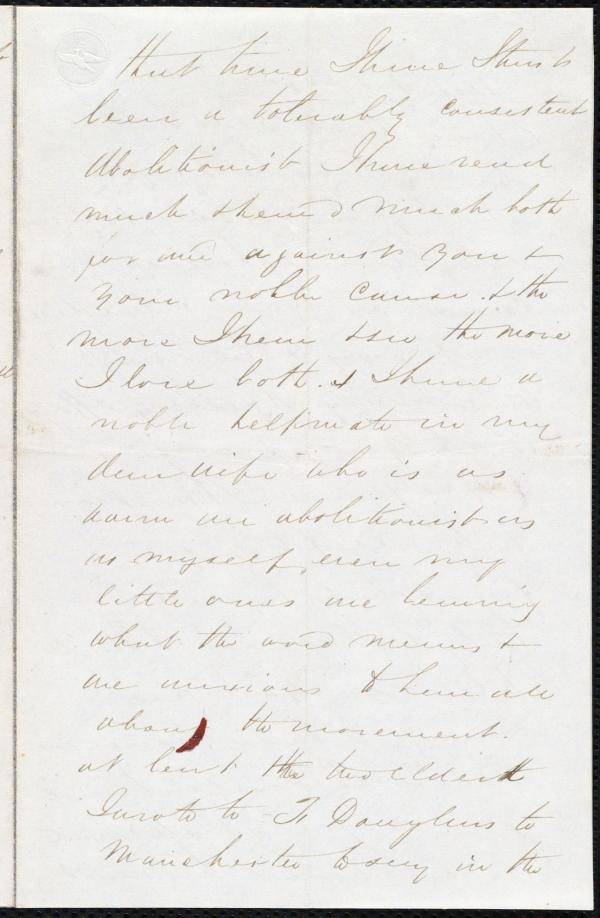 that time I have I trust
been a tolerably consistent
Abolitionist I have read
much & heard much both
for and against you &
your noble cause. & the
more I hear & see the more
I love both. & I have a
noble helpmate in my
dear wife who is as
warm an abolitionist as
as myself, even my
little ones are learning
what the word means &
are anxious to hear all
about the movement.
at least the two eldest
I wrote to F Douglass to
Manchester to say in the